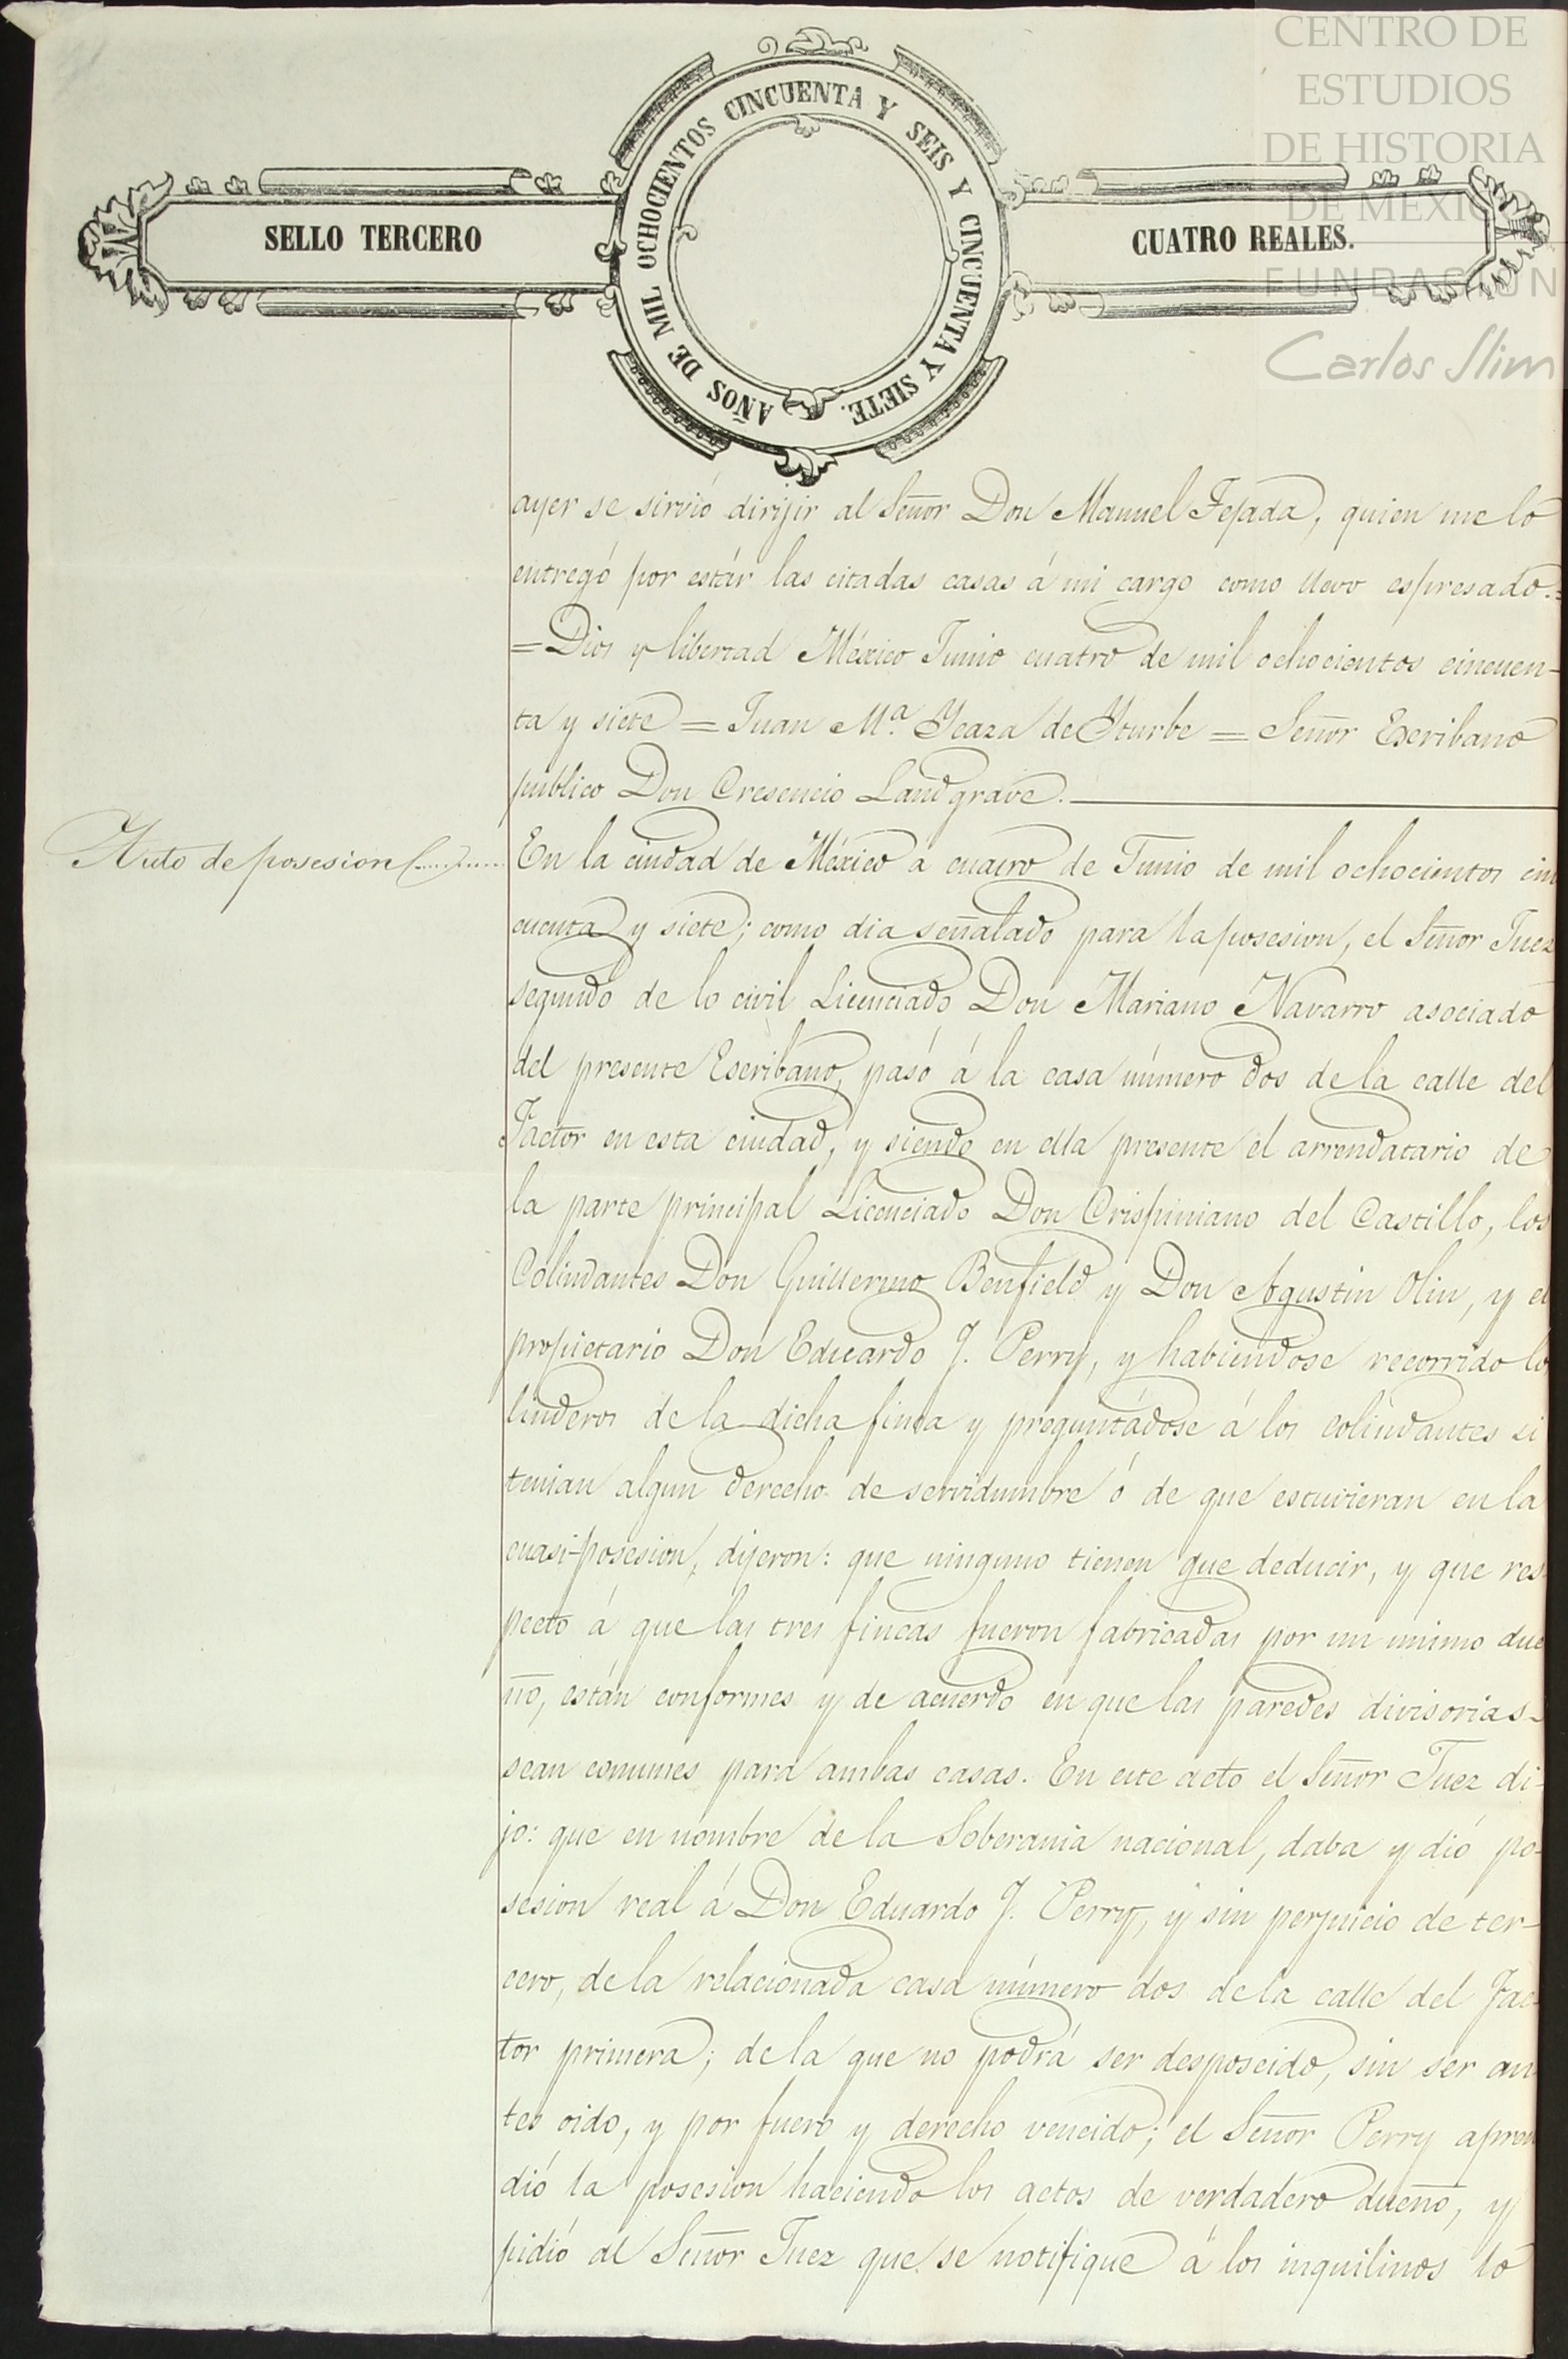 CENTRO DE
ESTUDIOS
DE HISTORIA
DE MÉXICO
FUNDACIÓN
Carlos Slim
SELLO TERCERO
AÑOS DE MIL OCHOCIENTOS CINCUENTA Y SEIS Y CINCUENTA Y SIETE.
CUATRO REALES.
ayer se sirvió dirijir al Señor Don Manuel Tejada, quien me lo
entregó por estár las citadas casas á mi cargo como llevo espresado.=
=Dios y libertad México Junio cuatro de mil ochocientos cincuen-
ta y siete = Juan Mª. Ycaza de Yturbe = Señor Escribano
publico Don Cresencio Landgrave.
Auto de posesion
En la ciudad de México a cuatro de Junio de mil ochocientos cin
cuenta y siete; como dia señalado para la posesion, el Señor Juez
segundo de lo civil Licenciado Don Mariano Navarro asociado
del presente Escribano, pasó á la casa número dos de la calle del
Factor en esta ciudad, y siendo en ella presente el arrendatario de
la parte principal Licenciado Don Crispiniano del Castillo, los
Colindantes Don Guillermo Benfield y Don Agustin Olin, y el
propietario Don Eduardo J. Perry, y habiendose recorrido lo
linderos de la dicha finca y preguntádose á los colindantes si
tenian algun derecho de servidumbre ó de que estuvieran en la
cuasi-posesion, dijeron: que ninguno tienen que deducir, y que res-
pecto á que las tres fincas fueron fabricadas por un mismo due
ño, están conformes y de acuerdo en que las paredes divisorias
sean comunes para ambas casas. En este acto el Señor Juez di-
jo: que en nombre de la Soberania nacional, daba y dió po-
sesion real á Don Eduardo J. Perry, y sin perjuicio de ter-
cero, de la relacionada casa número dos de la calle del Fac-
tor primera; de la que no podrá ser desposeido, sin ser an
tes oido, y por fuero y derecho vencido; el Señor Perry apren
dió la posesion haciendo los actos de verdadero dueño, y
pidió al Señor Juez que se notifique á los inquilinos lo